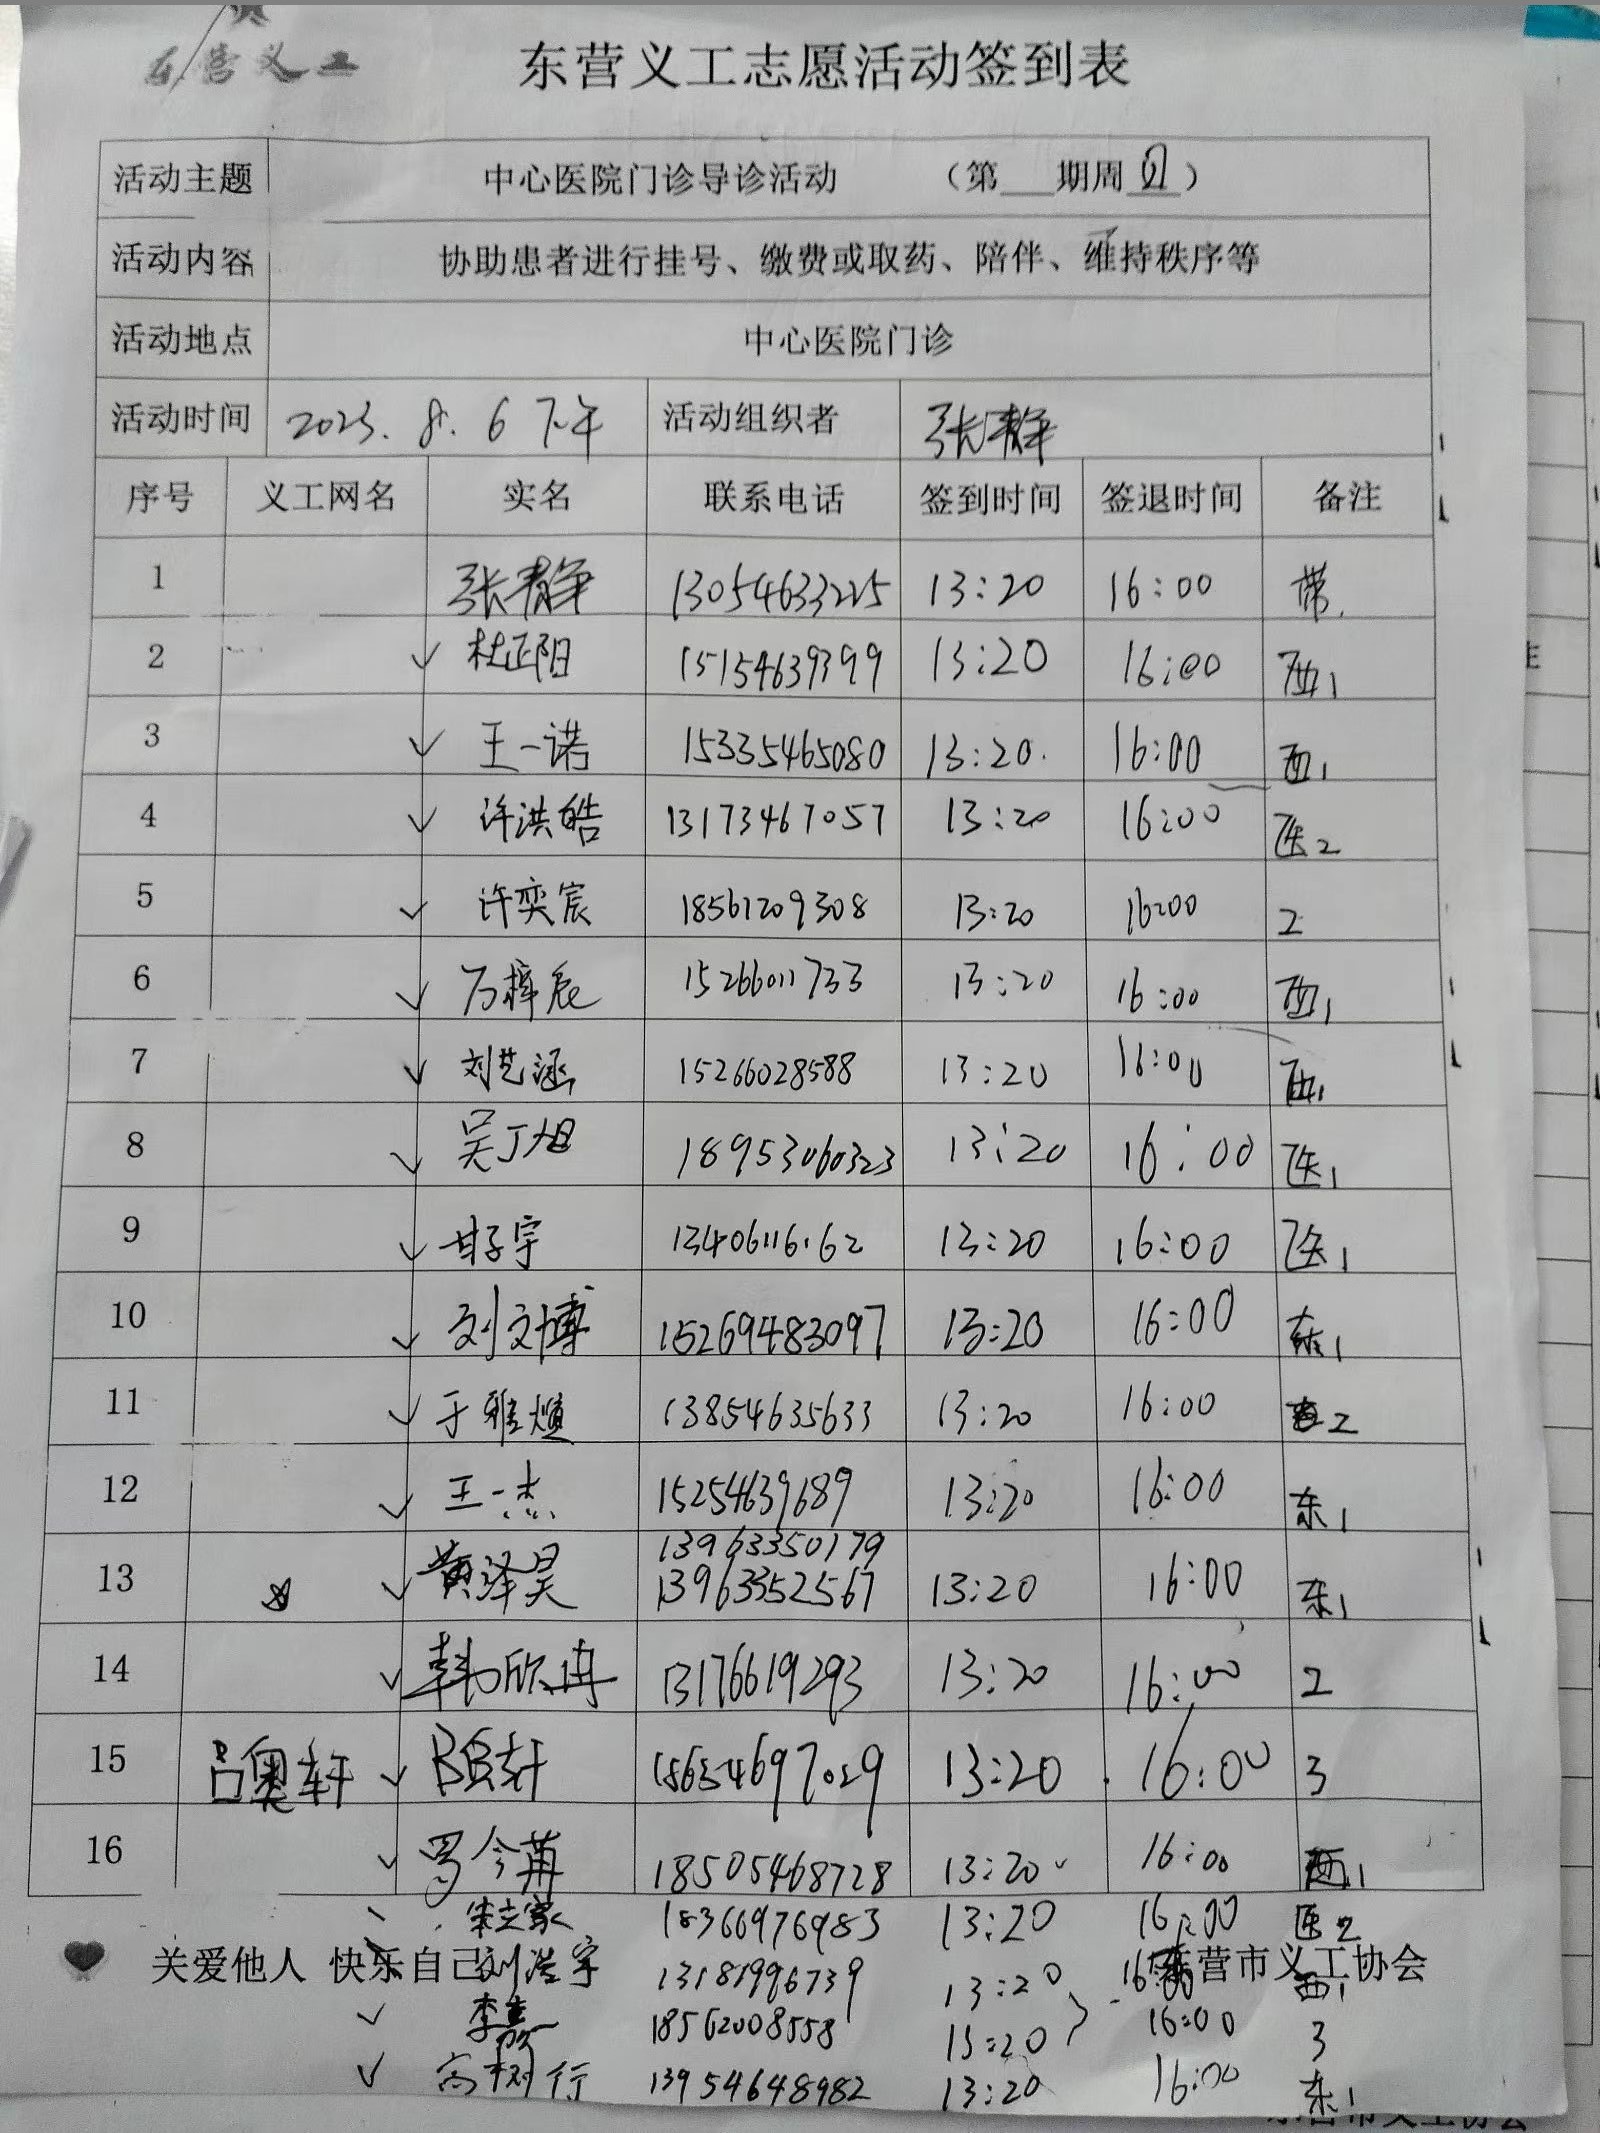 东营义工
东营义工志愿活动签到表
活动主题 中心医院门诊导诊活动 （第___期周四）
活动内容 协助患者进行挂号、缴费或取药、陪伴、维持秩序等
活动地点 中心医院门诊
活动时间 2025.8.6 下午 活动组织者 张静
序号 义工网名 实名 联系电话 签到时间 签退时间 备注
1 张静 13054633225 13:20 16:00 带
2 ✓ 杜正阳 15154639399 13:20 16:00 西1
3 ✓ 王一诺 15335465080 13:20 16:00 西1
4 ✓ 许洪皓 13173467057 13:20 16:00 医2
5 ✓ 许奕宸 18561209308 13:20 16:00 2
6 ✓ 万梓宸 15266011733 13:20 16:00 西1
7 ✓ 刘艺涵 15266028588 13:20 16:00 西1
8 ✓ 吴丁旭 18953060323 13:20 16:00 医1
9 ✓ 甘子宇 13406116162 13:20 16:00 医1
10 ✓ 刘文博 15269483097 13:20 16:00 东1
11 ✓ 于雅煊 13854635633 13:20 16:00 2
12 ✓ 王一杰 15254639689 13:20 16:00 东1
13 ✓ 黄泽昊 13963350179 13963352567 13:20 16:00 东1
14 ✓ 韩欣冉 13176619293 13:20 16:00 2
15 吕奥轩 ✓ 18654697029 13:20 16:00 3
16 ✓ 罗今苒 18505468728 13:20 16:00 西1
宋立家 18366976983 13:20 16:00 医2
关爱他人 快乐自己 刘浩宇 13181996739 13:20 16:00 西1 东营市义工协会
✓ 李 18562008558 13:20 16:00 3
✓ 高树行 13954648982 13:20 16:00 东1